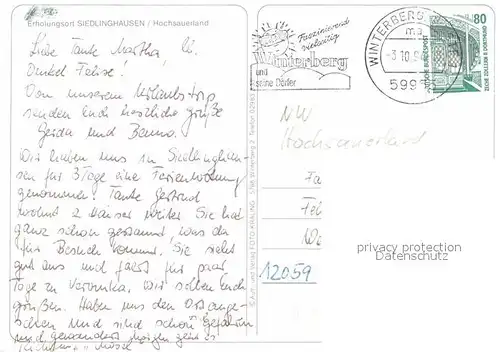 Erholungsort SIEDLINGHAUSEN / Hochsauerland
Liebe Tante Martha, li.
Onkel Felise!
Von unserem Urlaubstrip
senden Euch herzliche Grüße
Gerda und Benno.
Wir haben uns in Siedlinghau-
sen für 3 Tage eine Ferienwohnung
genommen. Tante Gertrud
wohnt 2 Häuser weiter. Sie hat
ganz schön gestaunt, was da
für Besuch kommt. Sie sieht
gut aus und fährt für paar
Tage zu Veronika. Wir sollen Euch
grüßen. Haben uns den Ort ange-
sehen und sind schon gefahren
und gewandert morgen geht es
Faszinierend
vielseitig
Winterberg
und seine Dörfer
WINTERBERG
ma
-3.10.9
599
80
DEUTSCHE BUNDESPOST
ZECHE ZOLLERN II, DORTMUND
Verlag FOTO
NW
Hochsauerland
Fa
Fel
We
12059
privacy protection
Datenschutz